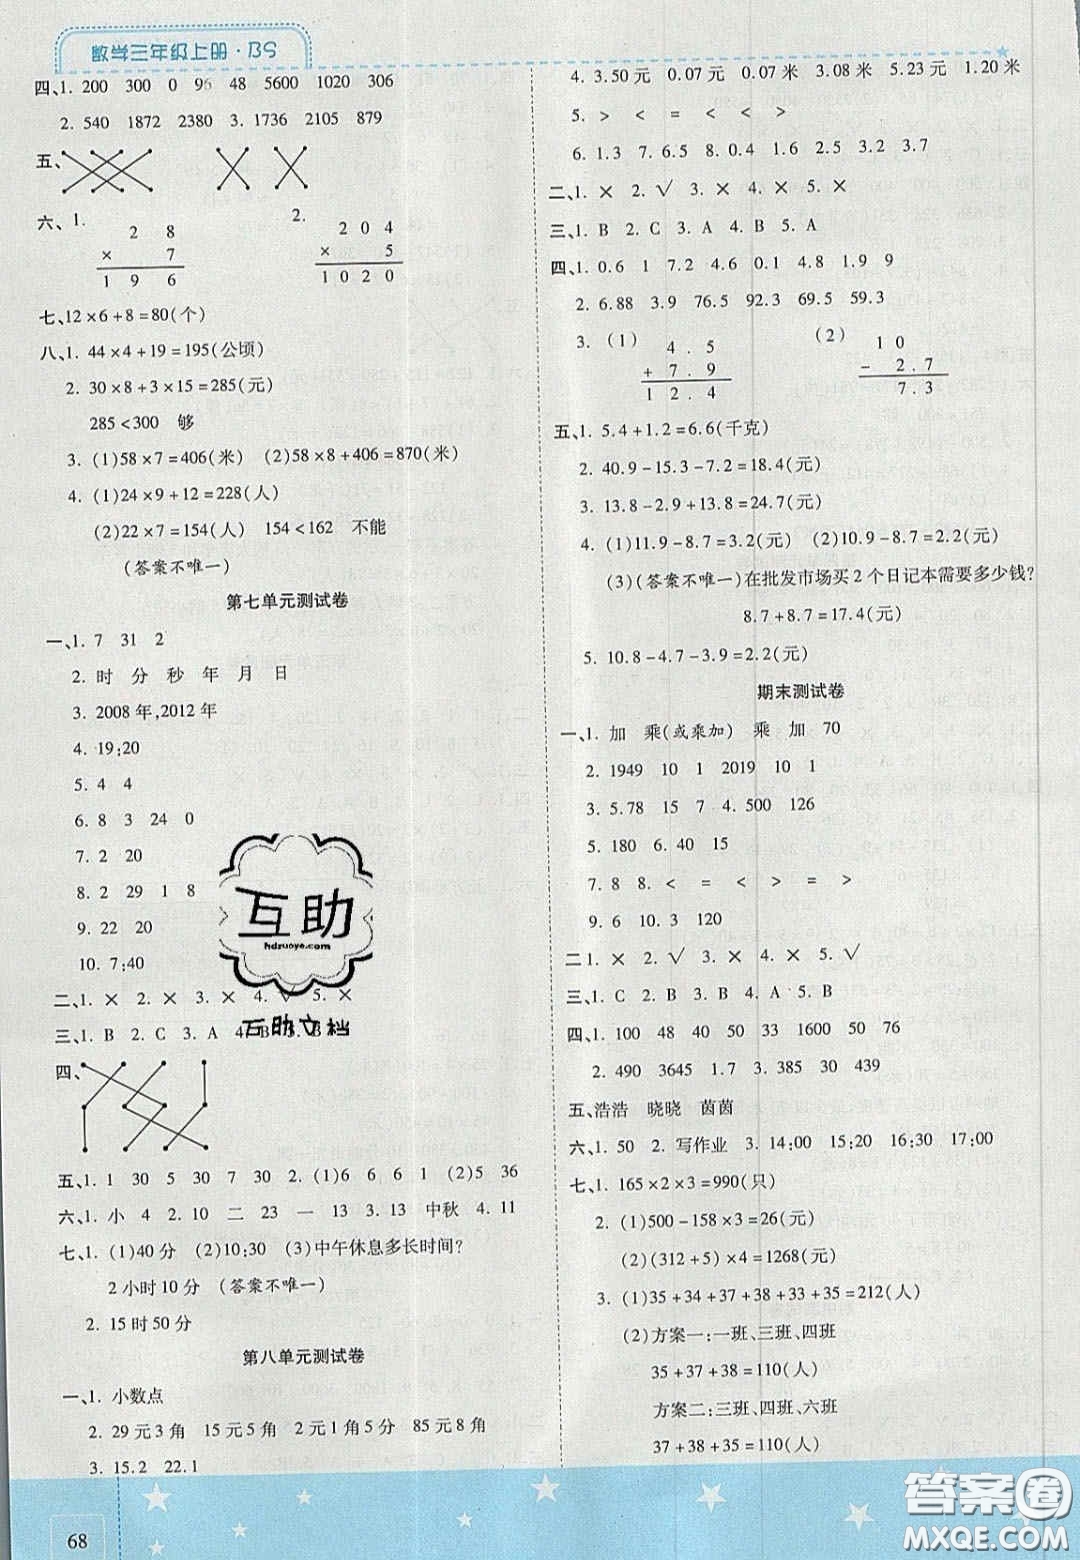 数学三年级上册·BS
四、1. 200 300 0 96 48 5600 1020 306
2. 540 1872 2380 3. 1736 2105 879
五、
六、1.
2 8
× 7
1 9 6
2.
2 0 4
× 5
1 0 2 0
七、12×6+8=80(个)
八、1. 44×4+19=195(公顷)
2. 30×8+3×15=285(元)
285<300 够
3. (1)58×7=406(米) (2)58×8+406=870(米)
4. (1)24×9+12=228(人)
(2)22×7=154(人) 154<162 不能
(答案不唯一)
第七单元测试卷
一、1. 7 31 2
2. 时 分 秒 年 月 日
3. 2008年,2012年
4. 19:20
5. 4 4
6. 8 3 24 0
7. 2 20
8. 2 29 1 8
9. 22 20
10. 7:40
二、1. × 2. × 3. × 4. √ 5. ×
三、1. B 2. C 3. A 4. B 5. B
四、
五、1. 1 30 5 30 7 30 2. (1)6 6 6 1 (2)5 36
六、1. 小 4 2. 10 二 23 一 13 3. 13 中秋 4. 11
七、1. (1)40分 (2)10:30 (3)中午休息多长时间?
2小时10分 (答案不唯一)
2. 15时50分
第八单元测试卷
一、1. 小数点
2. 29元3角 15元5角 2元1角5分 85元8角
3. 15.2 22.1
68
4. 3.50元 0.07元 0.07米 3.08米 5.23元 1.20米
5. > < = < < >
6. 1.3 7. 6.5 8. 0.4 1.6 2.5 3.2 3.7
二、1. × 2. √ 3. × 4. × 5. ×
三、1. B 2. C 3. A 4. B 5. A
四、1. 0.6 1 7.2 4.6 0.1 4.8 1.9 9
2. 6.88 3.9 76.5 92.3 69.5 59.3
3. (1)
4. 5
+ 7. 9
1 2. 4
(2)
1 0
- 2. 7
7. 3
五、1. 5.4+1.2=6.6(千克)
2. 40.9-15.3-7.2=18.4(元)
3. 13.8-2.9+13.8=24.7(元)
4. (1)11.9-8.7=3.2(元) (2)10.9-8.7=2.2(元)
(3)(答案不唯一)在批发市场买2个日记本需要多少钱?
8.7+8.7=17.4(元)
5. 10.8-4.7-3.9=2.2(元)
期末测试卷
一、1. 加 乘(或乘加) 乘 加 70
2. 1949 10 1 2019 10 1
3. 5.78 15 7 4. 500 126
5. 180 6. 40 15
7. 8 8. < = < = >
9. 6 10. 3 120
二、1. × 2. √ 3. × 4. × 5. √
三、1. C 2. B 3. B 4. A 5. B
四、1. 100 48 40 50 33 1600 50 76
2. 490 3645 1.7 3. 385 30 439
五、浩浩 晓晓 茵茵
六、1. 50 2. 写作业 3. 14:00 15:20 16:30 17:00
七、1. 165×2×3=990(只)
2. (1)500-158×3=26(元)
(2)(312+5)×4=1268(元)
3. (1)35+34+37+38+33+35=212(人)
(2)方案一:一班、三班、四班
35+37+38=110(人)
方案二:三班、四班、六班
37+38+35=110(人)
互助
hdzuoye.com
互助文档
答案圈
MXQE.COM